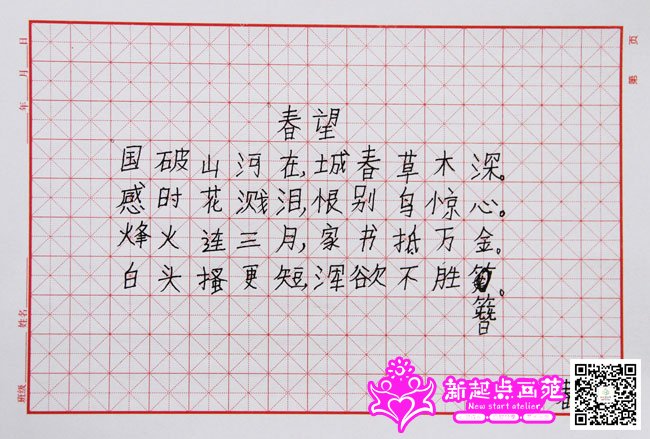 春望
国破山河在,城春草木深。
感时花溅泪,恨别鸟惊心。
烽火连三月,家书抵万金。
白头搔更短,浑欲不胜。
簪
第 页
年 月 日
姓名
班级
新起点画苑
New start atelier